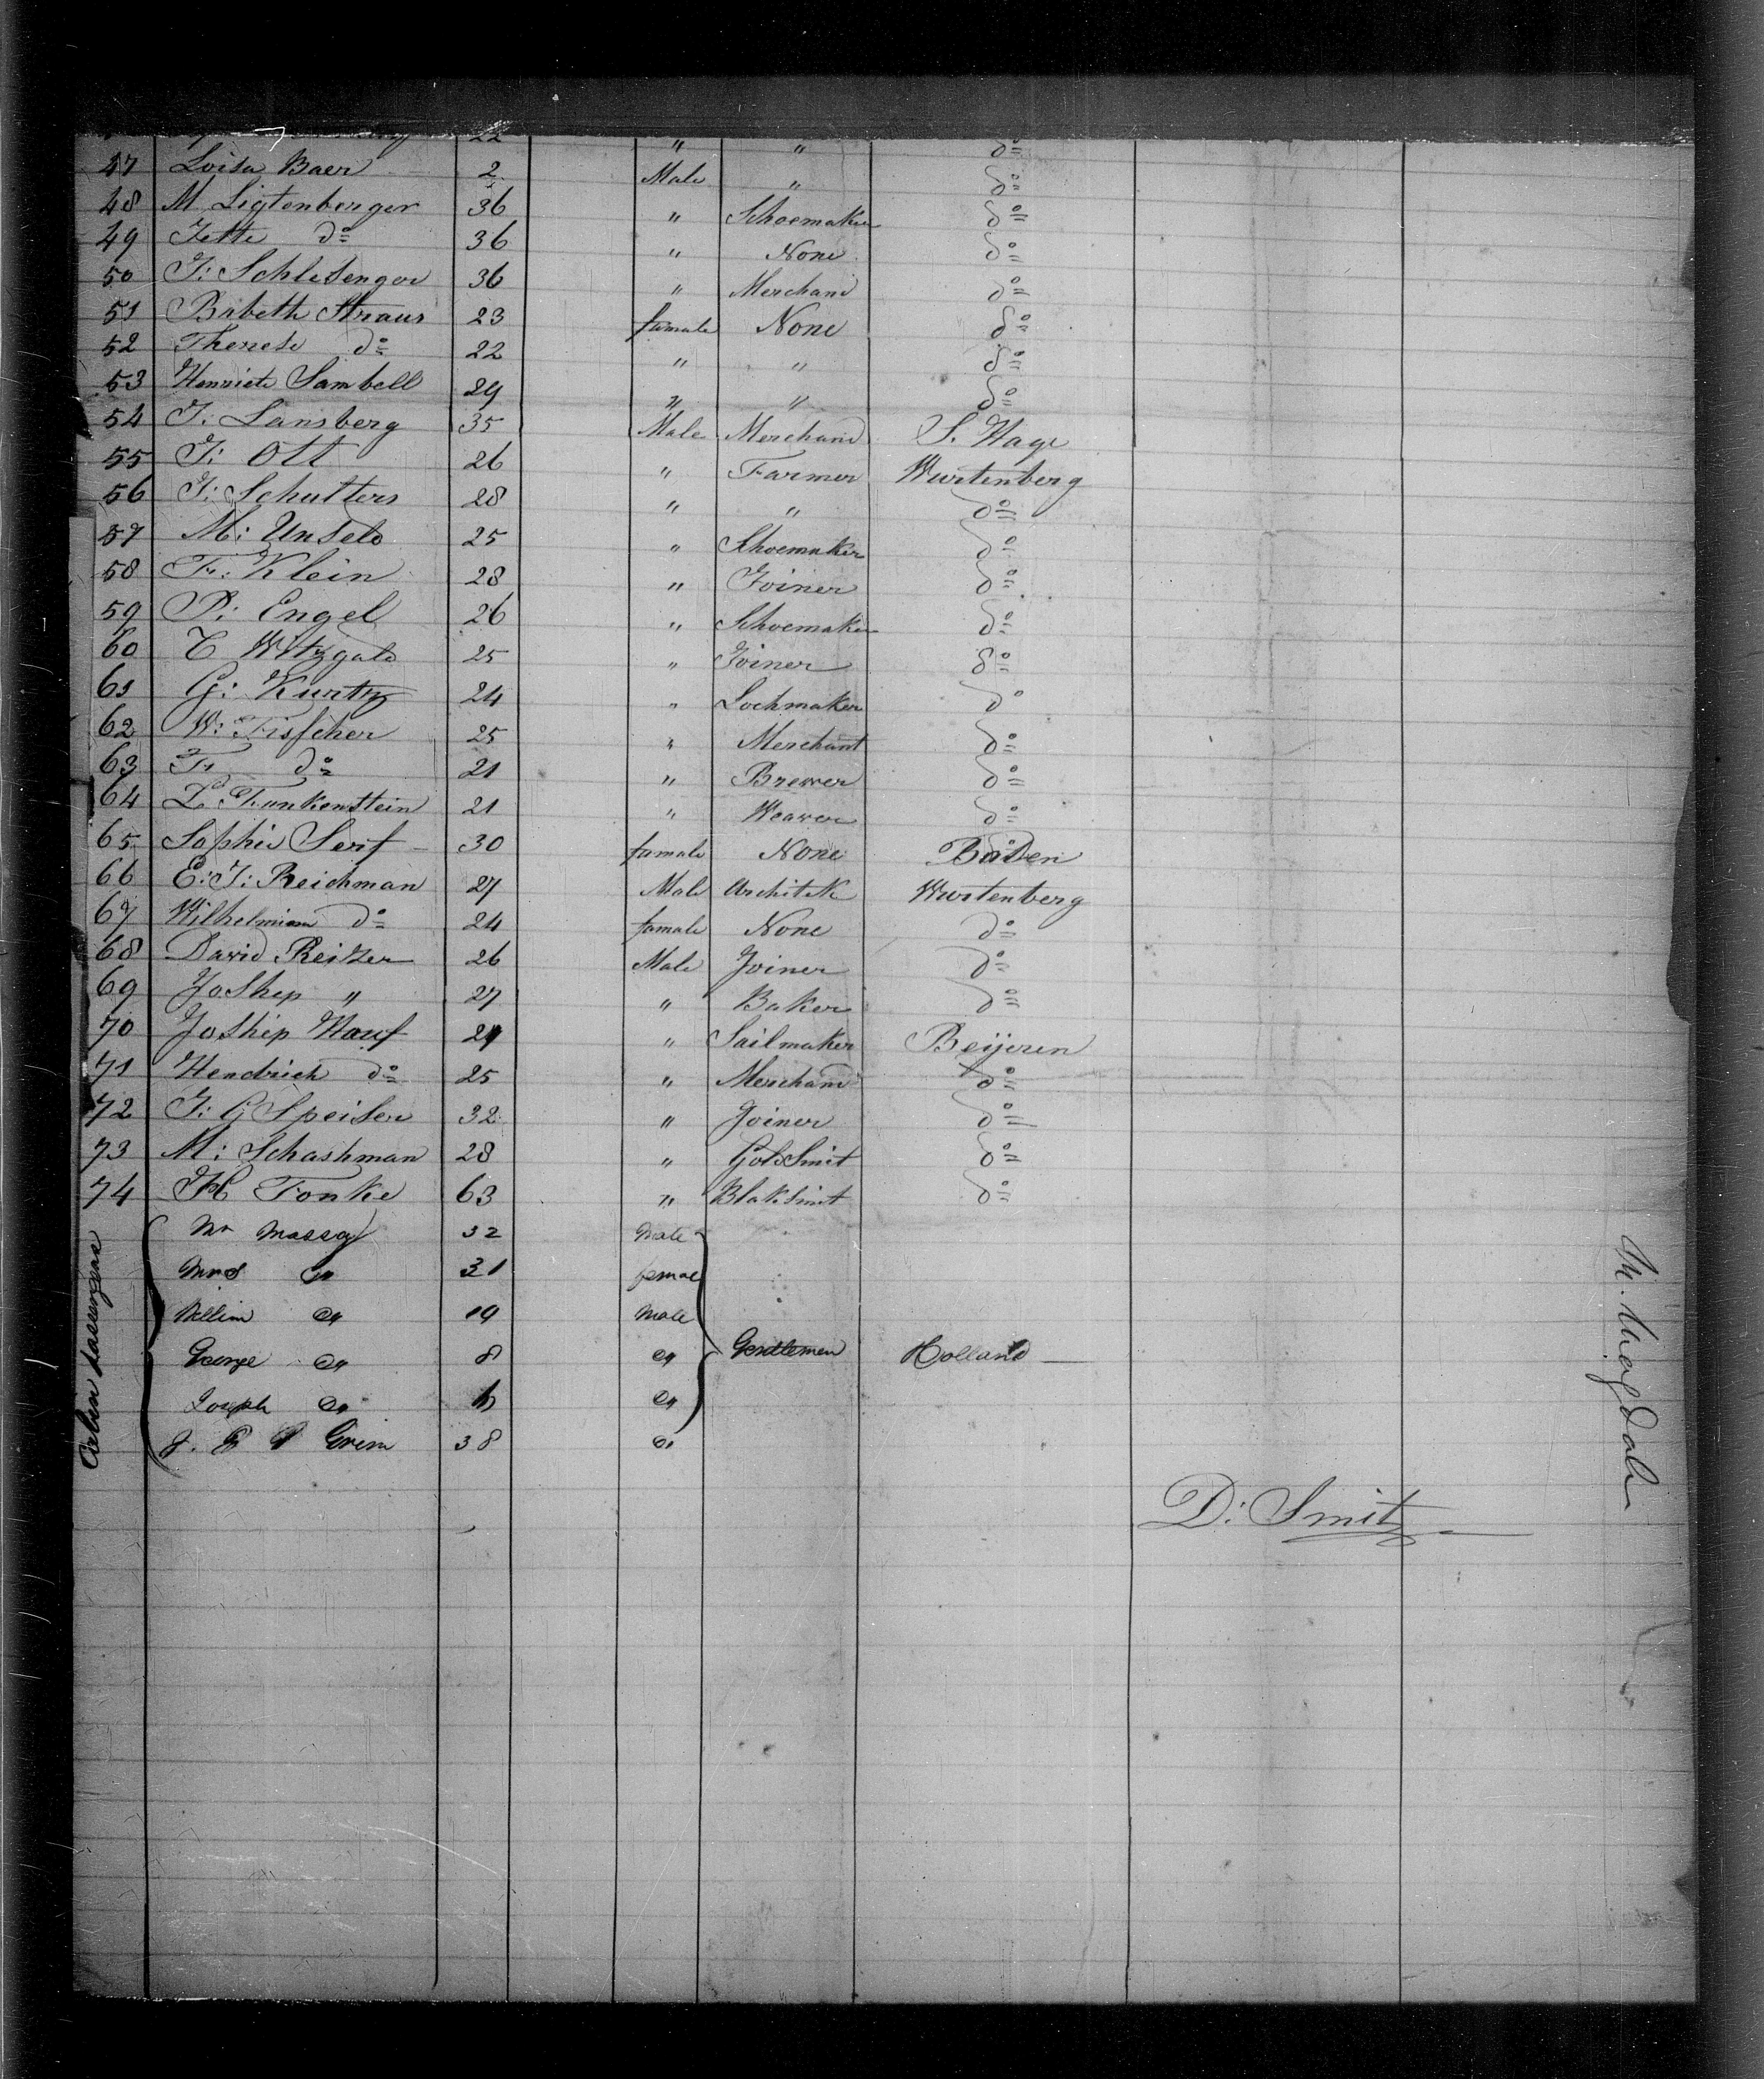 22 " " do
47 Loisa Baer 2 Male " do
48 M Ligtenberger 36 " Schoemaker do
49 Jette do 36 " None do
50 J: Schlesenger 36 " Merchand do
51 Babeth Straus 23 female None do
52 Therese do 22 " " do
53 Henriete Sambell 29 " " do
54 J: Lansberg 35 Male Merchand S. Hage
55 J: Ott 26 " Farmer Wurtenberg
56 J: Schutters 28 " " do
57 M: Unseld 25 " Schoemaker do
58 F: Klein 28 " Joiner do
59 P: Engel 26 " Schoemaker do
60 C Witzgald 25 " Joiner do
61 G: Kurtz 24 " Lochmaker do
62 W: Fisscher 25 " Merchant do
63 F: do 21 " Brewer do
64 L Funkenstein 21 " Weaver do
65 Sophie Serf 30 female None Baden
66 E: J: Reichman 27 Male Architek Wurtenberg
67 Wilhelmien do 24 female None do
68 David Reitzer 26 Male Joiner do
69 Joship " 27 " Baker do
70 Joship Hauf " Sailmaker Beijeren
71 Hendrich do 25 " Merchand do
72 J: G Speiser 32 " Joiner do
73 M: Schashman 28 " Gold Smit do
74 Tonke 63 " Blaksmit do
Mr Massey 32 Male
Mrs do 31 femal
Willim do Male
George do 8 do Gentlemen Holland
Joseph do do
J. Grim 38 do
passengers
D: Smit
M. Magdale